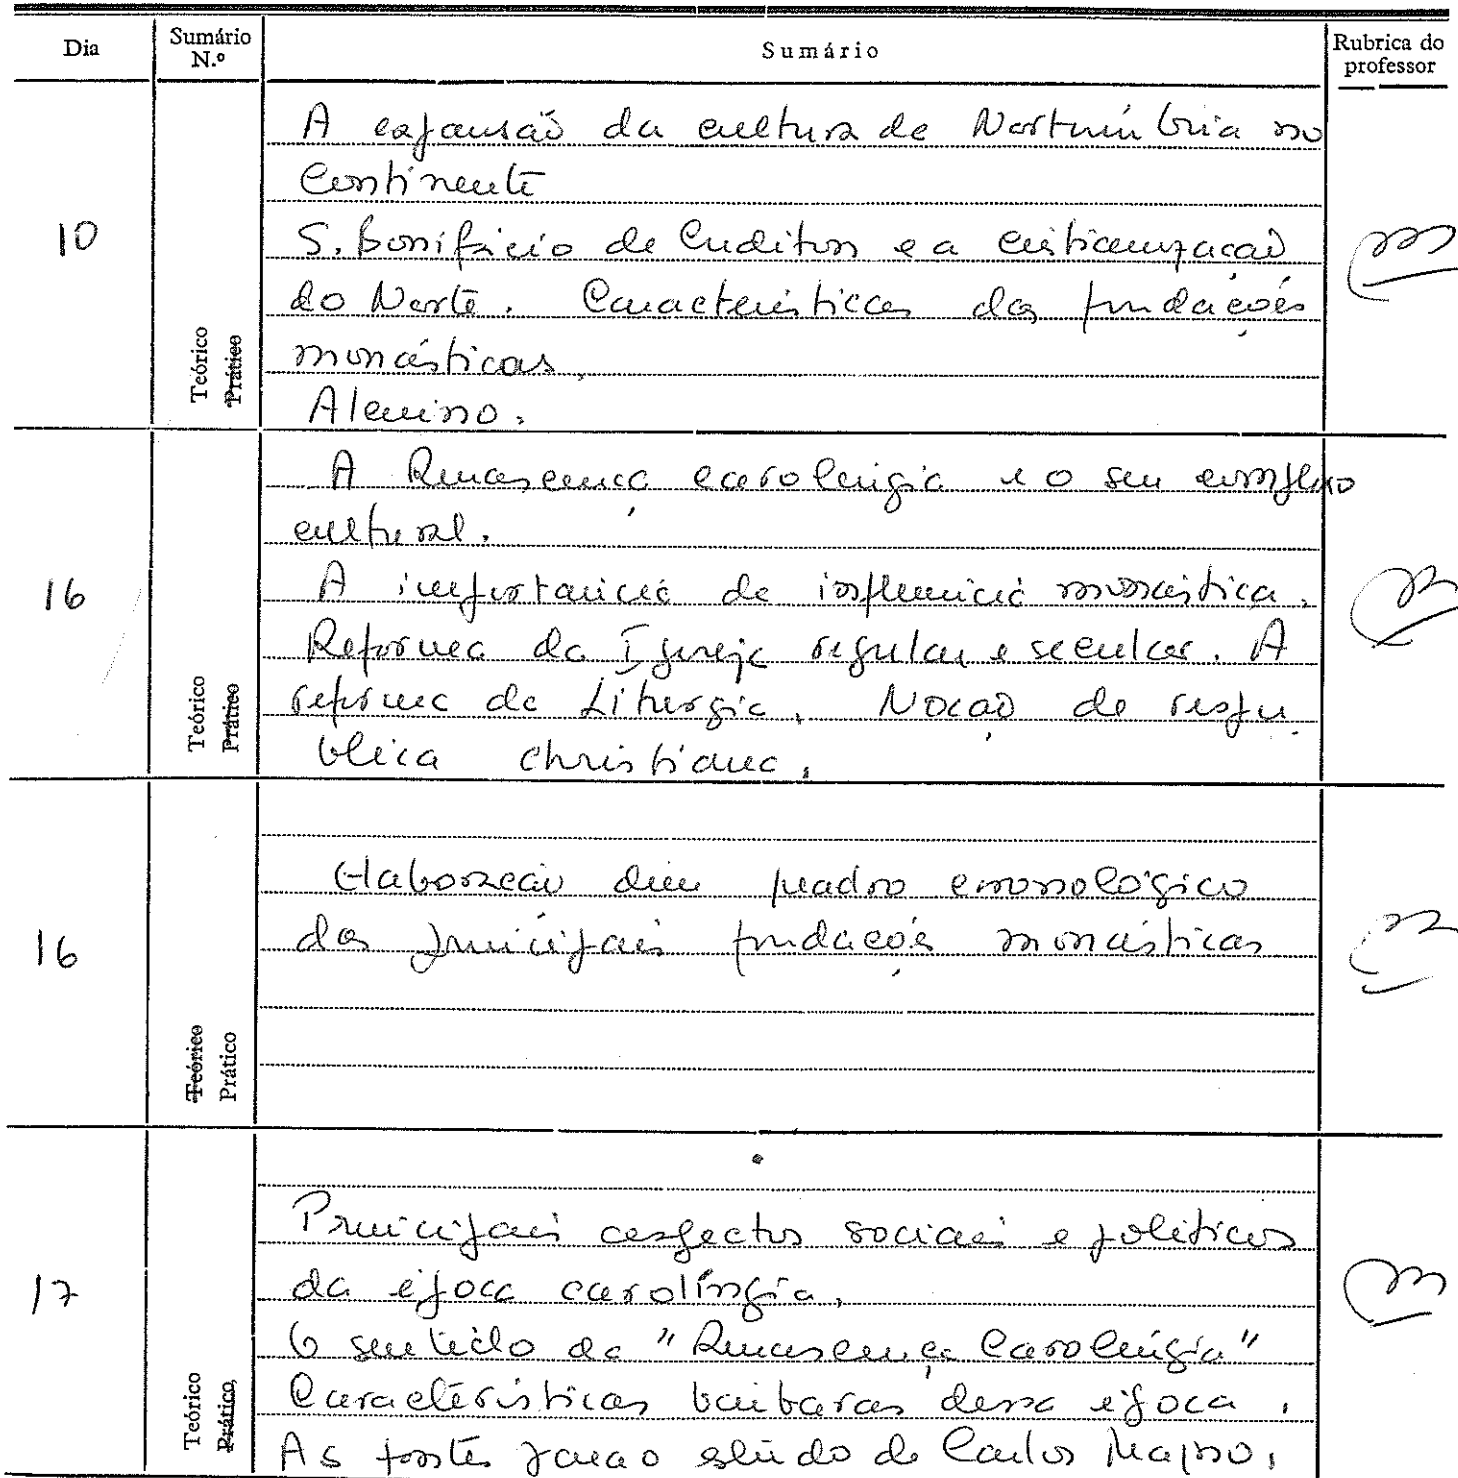 Dia
Sumário N.º
Sumário
Rubrica do professor
10
Teórico
Prático
A expansão da cultura de Nortúmbria no
Continente
S. Bonifácio de e a cristianização
do Norte. Características das fundações
monásticas.
Alcuino.
16
Teórico
Prático
A Renascença carolíngia e o seu complexo
cultural.
A importância da influência monástica.
Reforma da Igreja regular e secular. A
reforma da Liturgia. Noção de respu
blica christiana.
16
Teórico
Prático
Elaboração dum quadro cronológico
das principais fundações monásticas
17
Teórico
Prático
Principais aspectos sociais e políticos
da época carolíngia.
O sentido da "Renascença Carolíngia"
Características bárbaras dessa época.
As fontes para o estudo de Carlos Magno.